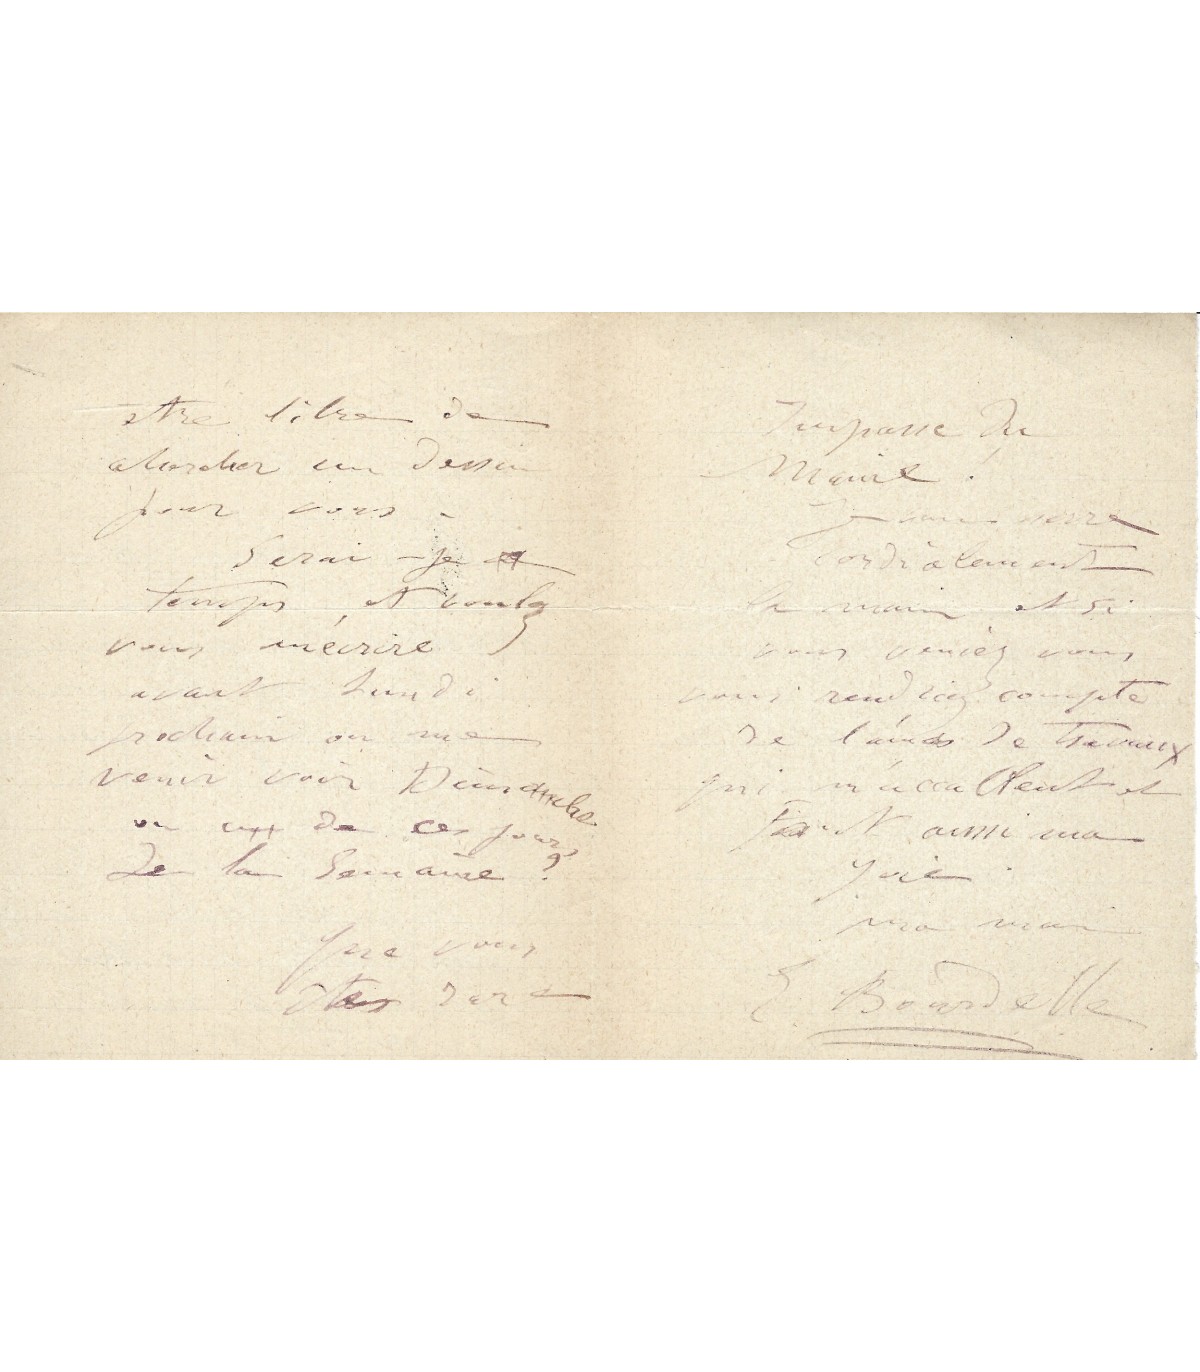 etre libre de
aborder un dessin
pour vous.
Serai-je à
temps et voulez
vous m'écrire
avant Lundi
prochain ou me
venir voir Dimanche
ou un de ces jours
de la Semaine?
Que vous
êtes rare
Impasse du
Maine!
Je vous serre
Cordialement
la main et si
vous veniez vous
vous rendriez compte
de l'amas de travaux
qui m'accablent et
font aussi ma
joie.
ma main
E. Bourdelle